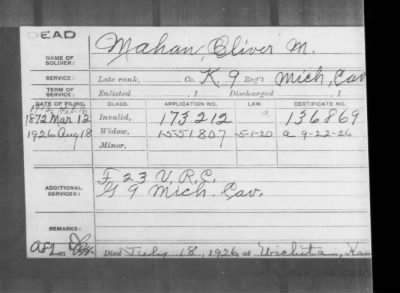 DEAD
NAME OF SOLDIER: Mahan, Oliver M.
SERVICE: Late rank, Co. K 9 Reg't Mich, Cav
TERM OF SERVICE: Enlisted , 1 Discharged , 1
DATE OF FILING. CLASS. APPLICATION NO. LAW. CERTIFICATE NO.
1872 Mar 12 Invalid, 173212 a 136869
1926 Aug 18 Widow, 1551807 5-1-20 a 9-22-26
Minor,
ADDITIONAL SERVICES: F 23 V.R.C.
G 9 Mich. Cav.
REMARKS:
Died July 18, 1926 at Wichita, Kan